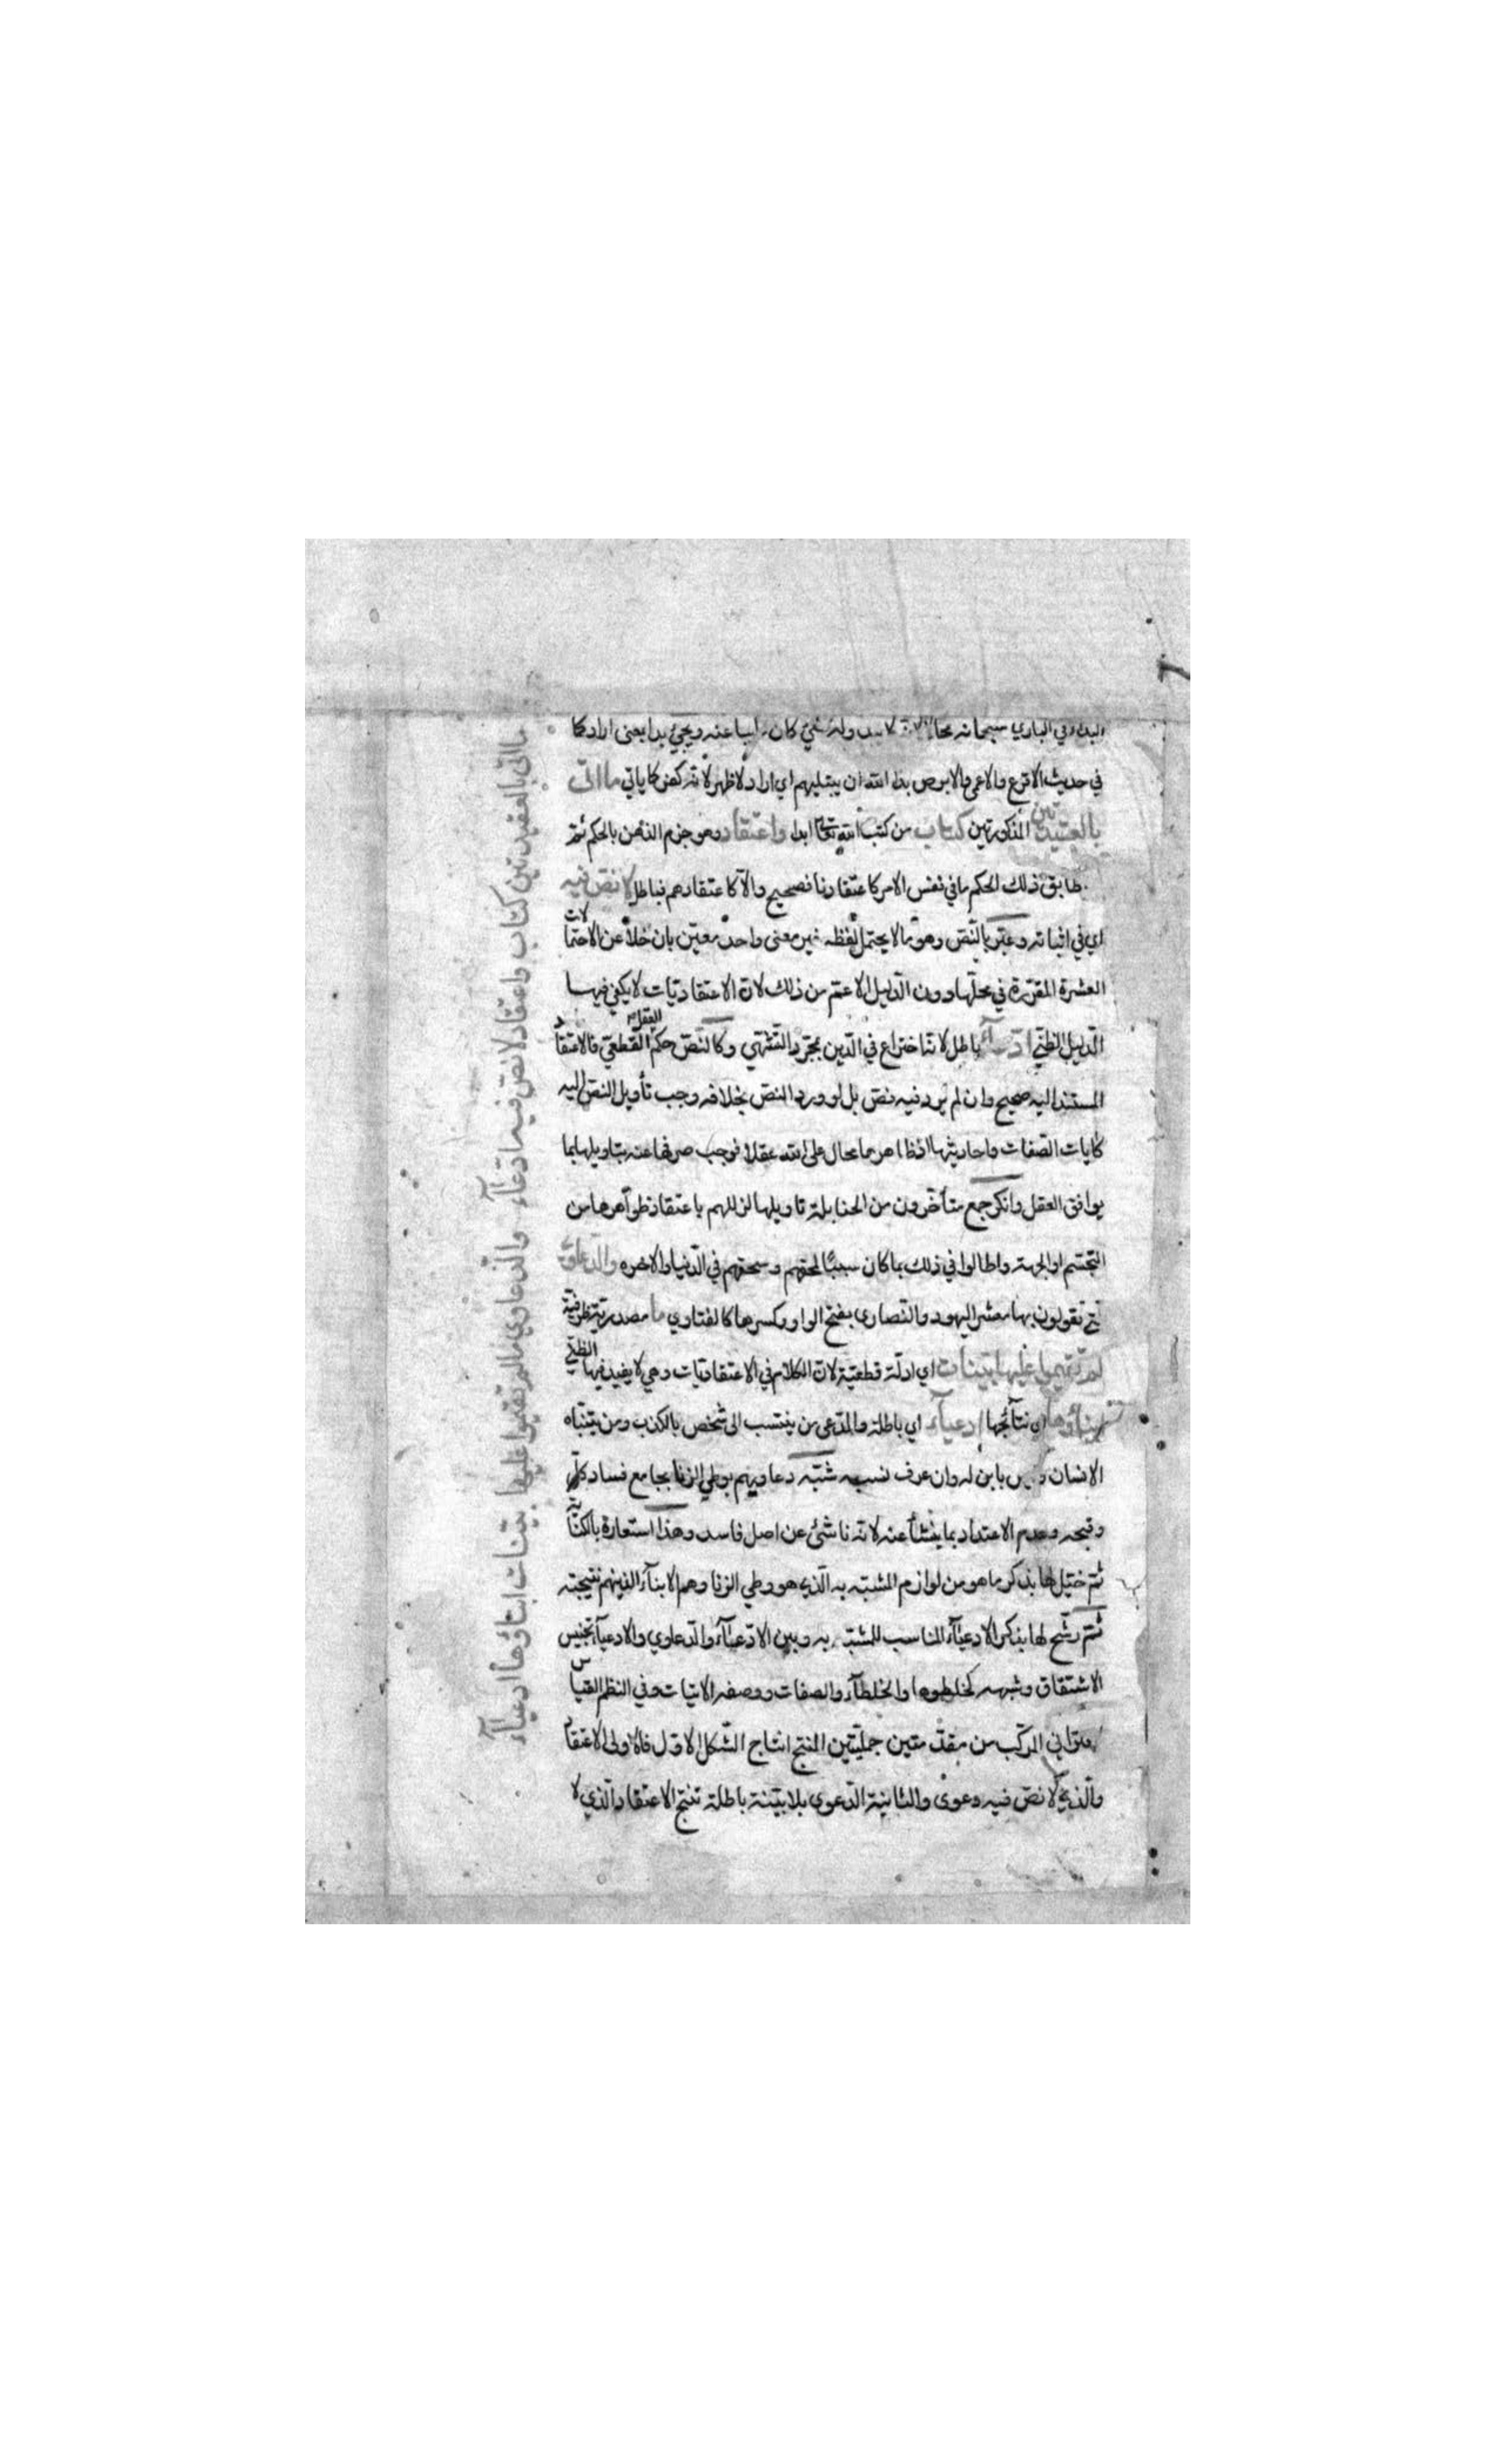 البداء في الباري سبحانه محال لانه لا يبدو له شيء كان غايبا عنه ويجيء بدا بمعنى اراد كما
في حديث الاقرع والاعمى والابرص بدا الله ان يبتليهم اي اراد لا ظهر لانه كفر كما ياتي ما اتى
بالعقيدتين المذكورتين كتاب من كتب الله تعالى ابدا واعتقاد وهو جزم الذهن بالحكم ثم
طابق ذلك الحكم ما في نفس الامر كاعتقادنا فصحيح والا كاعتقادهم فباطل لا نص فيه
اي في اثباته وعبر بالنص وهو ما لا يحتمل لفظه غير معنى واحد معين بان خلا عن الاحتمالات
العشرة المقررة في محلها دون الدليل الاعم من ذلك لان الاعتقاديات لا يكفي فيها
الدليل الظني ادعاء باطل لانه اختراع في الدين بمجرد التشهي وكالنص حكم العقل القطعي فالاعتقاد
المستند اليه صحيح وان لم يرد فيه نص بل لو ورد النص بخلافه وجب تأويل النص اليه
كايات الصفات واحاديثها اذ ظاهرها محال على الله عقلا فوجب صرفها عنه بتاويلها بما
يوافق العقل وانكر جمع متأخرون من الحنابلة تاويلها لزللهم باعتقاد ظواهرها من
التجسم او الجهة واطالوا في ذلك بما كان سببا لمحقهم وسحقهم في الدنيا والاخره والدعاوى
التي تقولون بها معشر اليهود والنصارى بفتح الواو وكسرها كالفتاوي ما مصدرية ظرفية
لم تقيموا عليها بينات اي ادلة قطعية لان الكلام في الاعتقاديات وهي لا يفيد فيها الظني
ابناؤها اي نتائجها ادعياء اي باطلة والمدعى من ينتسب الى شخص بالكذب ومن يتبناه
الانسان وليس بابن له وان عرف نسبه شبه دعاويهم بوطي الزنا بجامع فساد كل
وقبحه وعدم الاعتداد بما ينشأ عنه لانه ناشئ عن اصل فاسد وهذا استعارة بالكناية
ثم خيل لها بذكر ما هو من لوازم المشبه به الذي هو وطي الزنا وهم الابناء الذين هم نتيجته
ثم رشح لها بذكر الادعياء المناسب للمشبه به وبين الادعاء والدعاوي والادعياء تجنيس
الاشتقاق وشبهه كخلطوها والخلطاء والصفات ووصفه الاتيات وفي النظم القياس
الاقتراني المركب من مقدمتين حمليتين المنتج انتاج الشكل الاول فالاولى الاعتقاد
والذي لا نص فيه دعوى والثانية الدعوى بلا بينة باطلة تنتج الاعتقاد الذي لا
ما اتى بالعقيدتين كتاب واعتقاد لا نص فيه ادعاء والدعاوي ما لم تقيموا عليها بينات ابناؤها ادعياء